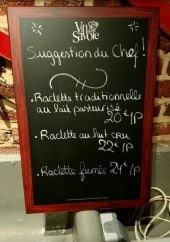 Vin de
Savoie
Suggestion du Chef !
. Raclette traditionnelle
au lait pasteurisé
20€/P
. Raclette au lait cru
22€/P
. Raclette fumée 24€/P